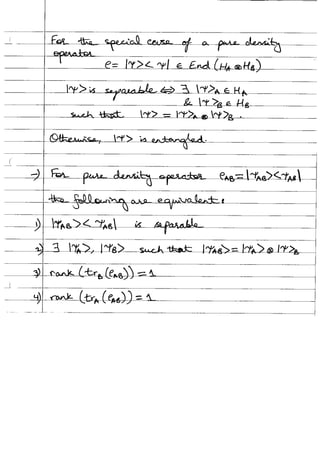 For the special case of a pure density
operator
ρ = |Ψ><Ψ| ∈ End (H_A ⊗ H_B)
|Ψ> is separable ⇔ ∃ |Ψ>_A ∈ H_A
& |Ψ>_B ∈ H_B
such that |Ψ> = |Ψ>_A ⊗ |Ψ>_B.
Otherwise, |Ψ> is entangled.
→) For pure density operator ρ_AB = |Ψ_AB><Ψ_AB|
the following are equivalent:
1) |Ψ_AB><Ψ_AB| is separable
2) ∃ |Ψ_A>, |Ψ_B> such that |Ψ_AB> = |Ψ_A> ⊗ |Ψ>_B
3) rank (tr_B (ρ_AB)) = 1
4) rank (tr_A (ρ_AB)) = 1